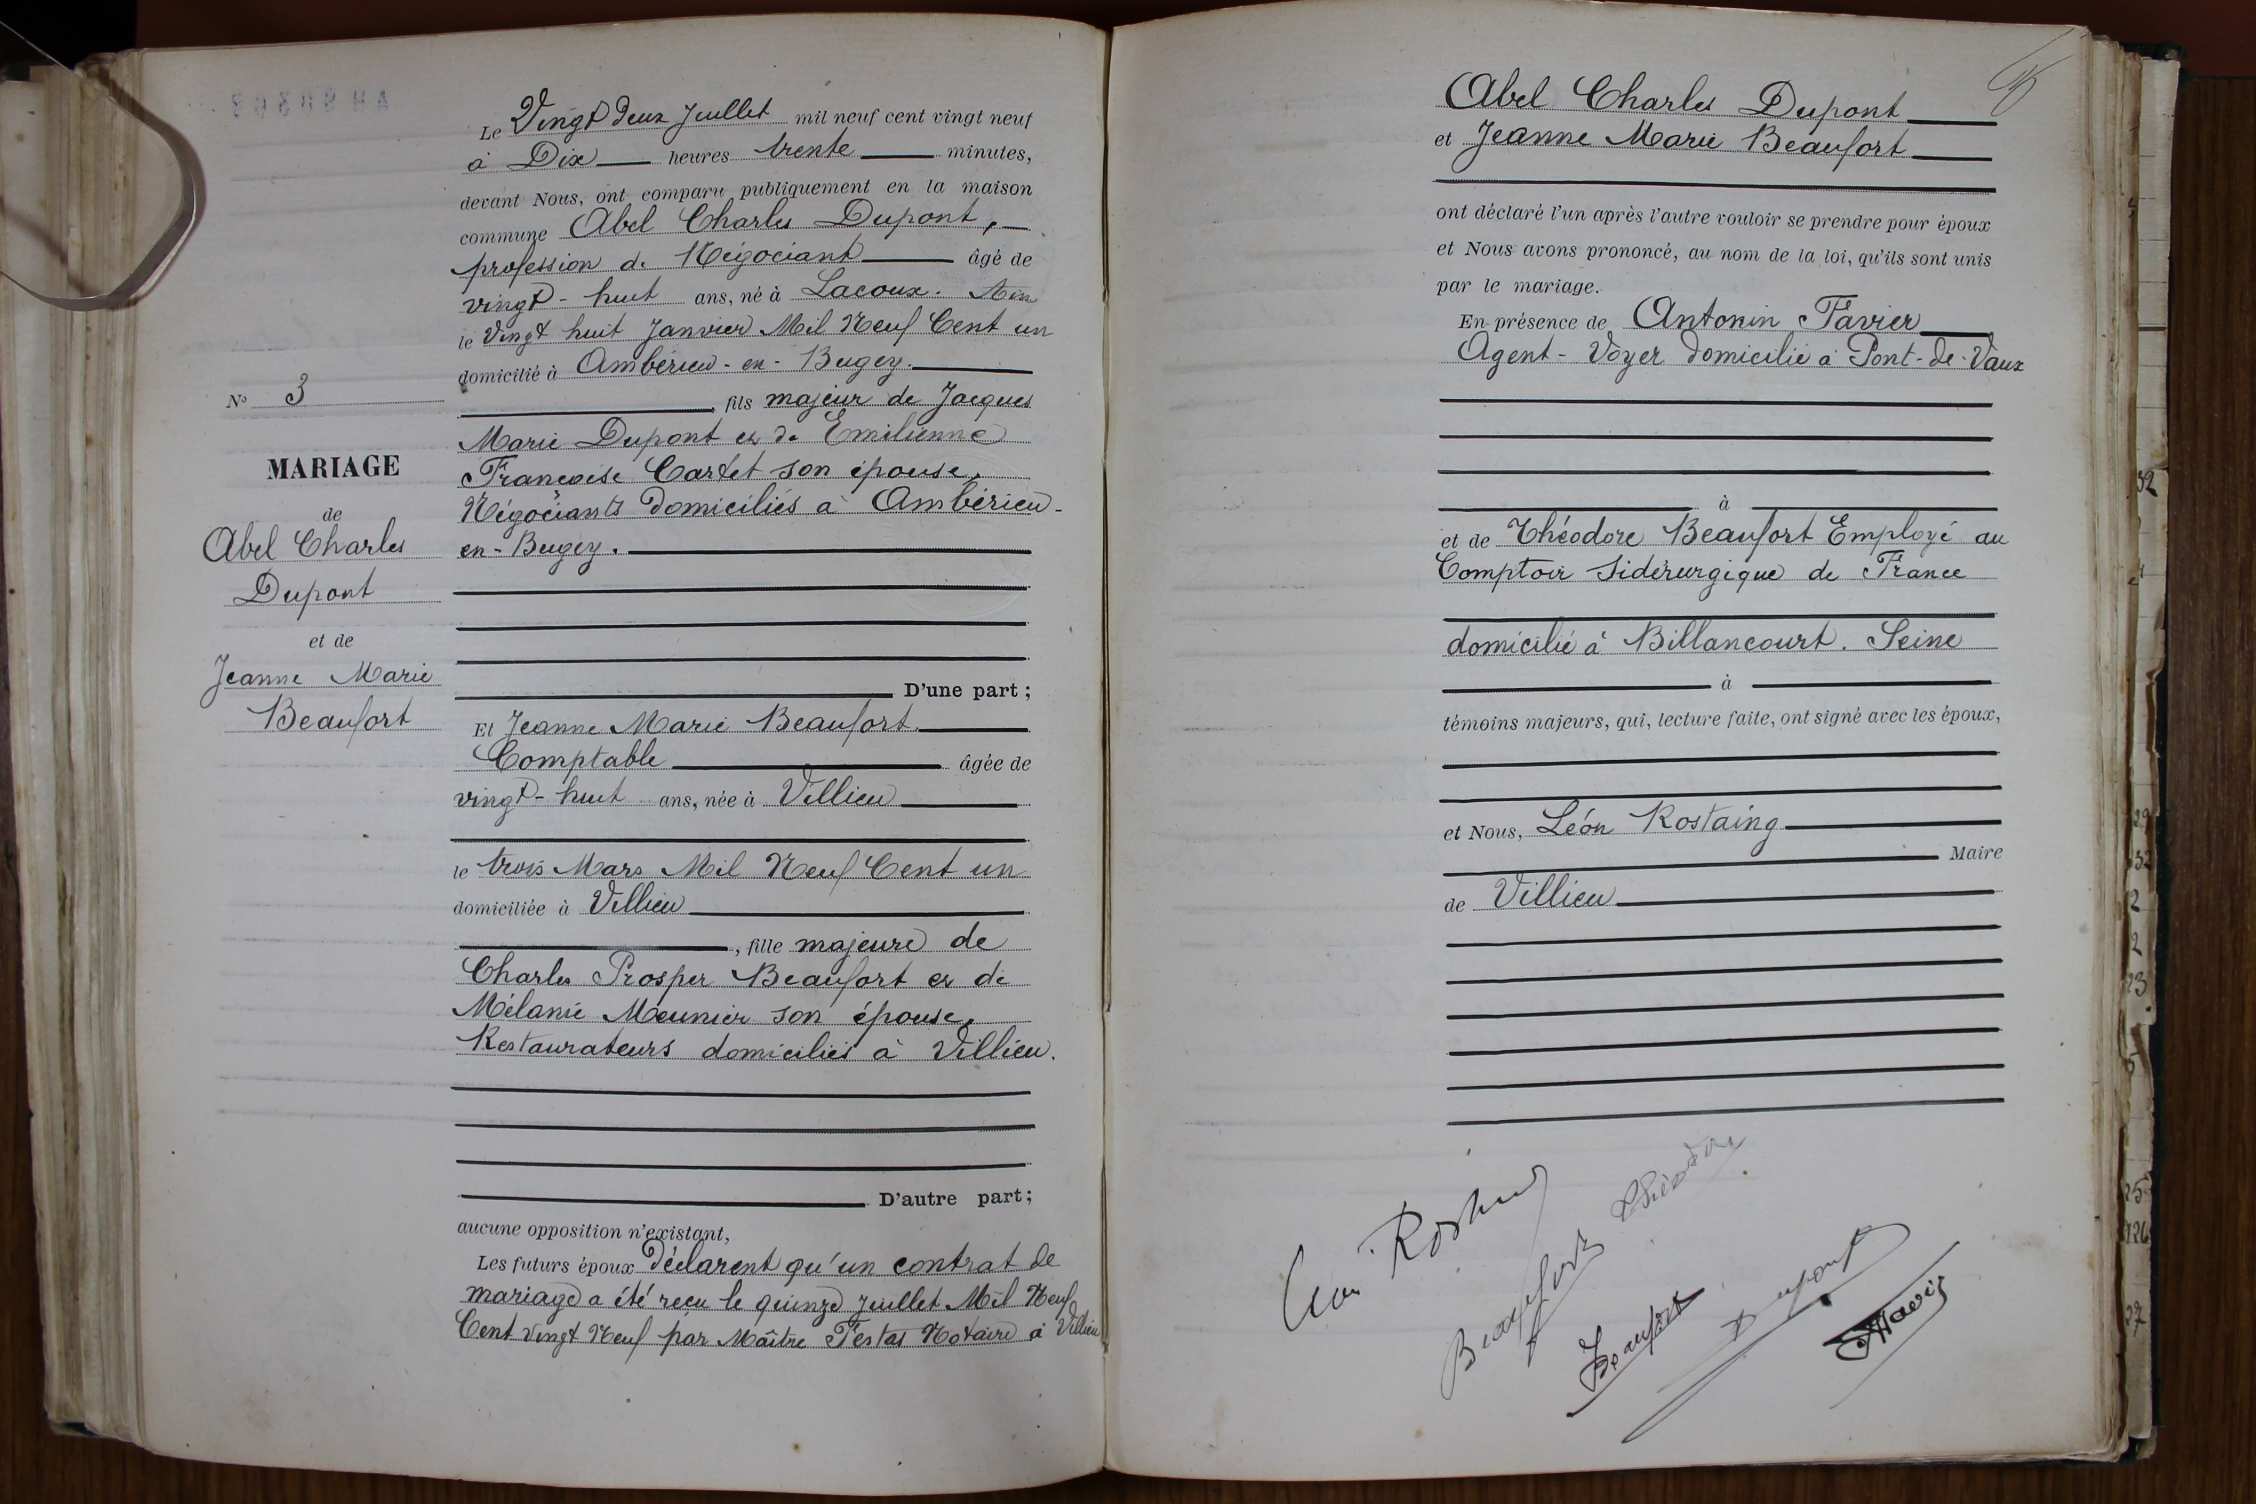 Le Vingt deux Juillet mil neuf cent vingt neuf
à Dix heures trente minutes,
devant Nous, ont comparu publiquement en la maison
commune Abel Charles Dupont,
profession de Négociant âgé de
vingt-huit ans, né à Lacoux. Ain
le Vingt huit Janvier Mil Neuf Cent un
domicilié à Ambérieu-en-Bugey.
, fils majeur de Jacques
Marie Dupont et de Emilienne
Françoise Cartet son épouse,
Négociants domiciliés à Ambérieu-
en-Bugey.
D'une part;
Et Jeanne Marie Beaufort.
Comptable âgée de
vingt-huit ans, née à Villieu
le trois Mars Mil Neuf Cent un
domiciliée à Villieu
, fille majeure de
Charles Prosper Beaufort et de
Mélanie Meunier son épouse,
Restaurateurs domiciliés à Villieu.
D'autre part;
aucune opposition n'existant,
Les futurs époux déclarent qu'un contrat de
mariage a été reçu le quinze Juillet Mil Neuf
Cent Vingt Neuf par Maître Festas Notaire à Villieu
N° 3
MARIAGE
de
Abel Charles
Dupont
et de
Jeanne Marie
Beaufort
Abel Charles Dupont
et Jeanne Marie Beaufort
ont déclaré l'un après l'autre vouloir se prendre pour époux
et Nous avons prononcé, au nom de la loi, qu'ils sont unis
par le mariage.
En présence de Antonin Favier
Agent-Voyer domicilié à Pont-de-Vaux
à
et de Théodore Beaufort Employé au
Comptoir Sidérurgique de France
domicilié à Billancourt. Seine
à
témoins majeurs, qui, lecture faite, ont signé avec les époux,
et Nous, Léon Rostaing
Maire
de Villieu
Beaufort Théodore
Beaufort
Dupont